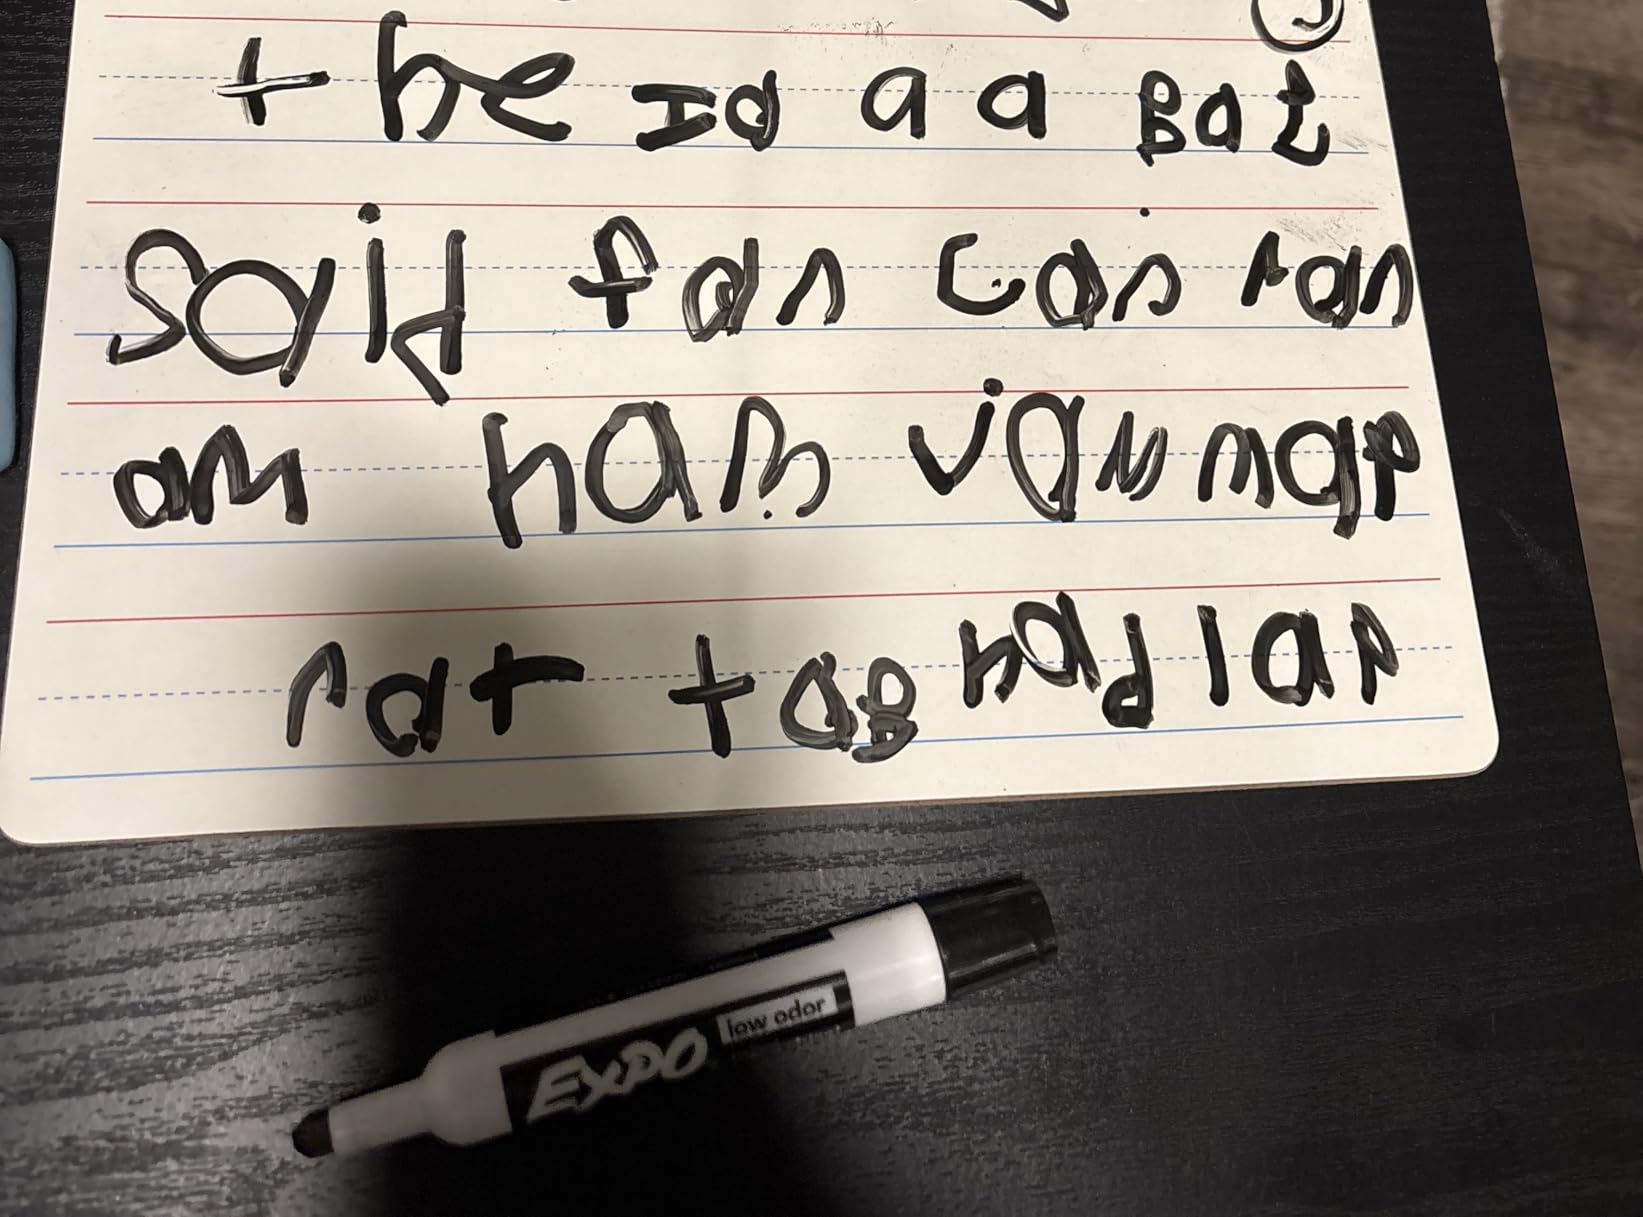 the Id a a Bat
said fan can ran
am ham jam map
rat tag had lap
EXPO low odor